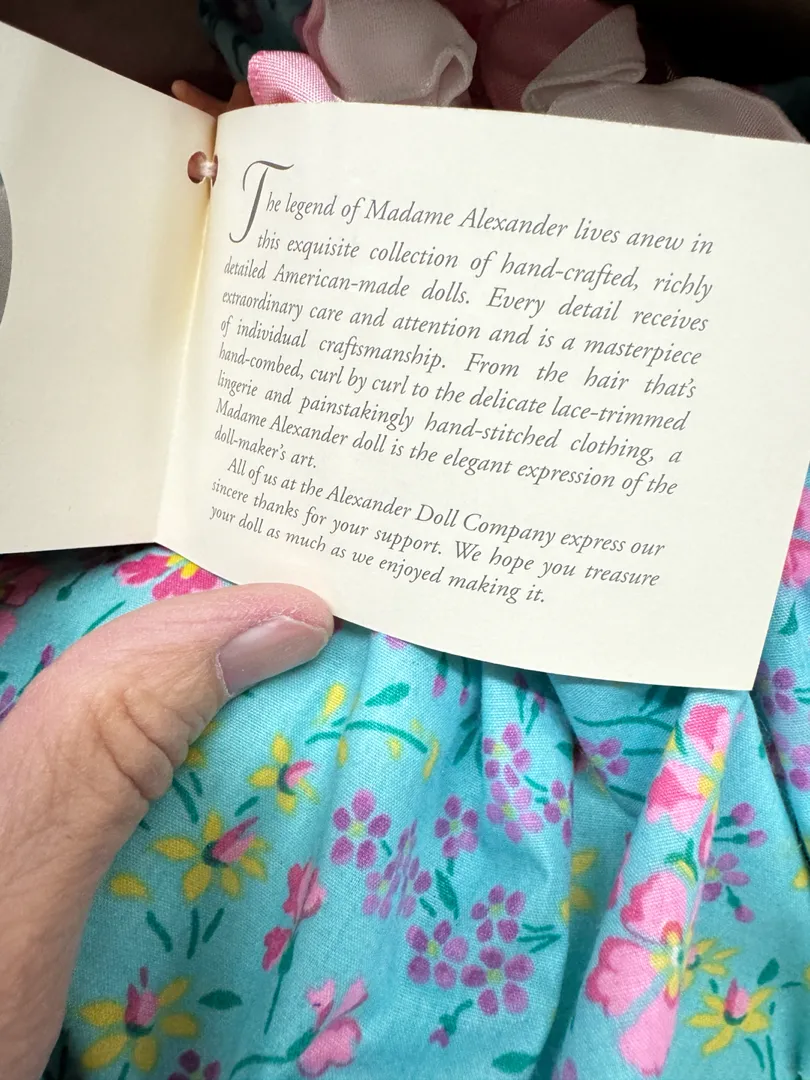 The legend of Madame Alexander lives anew in
this exquisite collection of hand-crafted, richly
detailed American-made dolls. Every detail receives
extraordinary care and attention and is a masterpiece
of individual craftsmanship. From the hair that's
hand-combed, curl by curl to the delicate lace-trimmed
lingerie and painstakingly hand-stitched clothing, a
Madame Alexander doll is the elegant expression of the
doll-maker's art.
All of us at the Alexander Doll Company express our
sincere thanks for your support. We hope you treasure
your doll as much as we enjoyed making it.